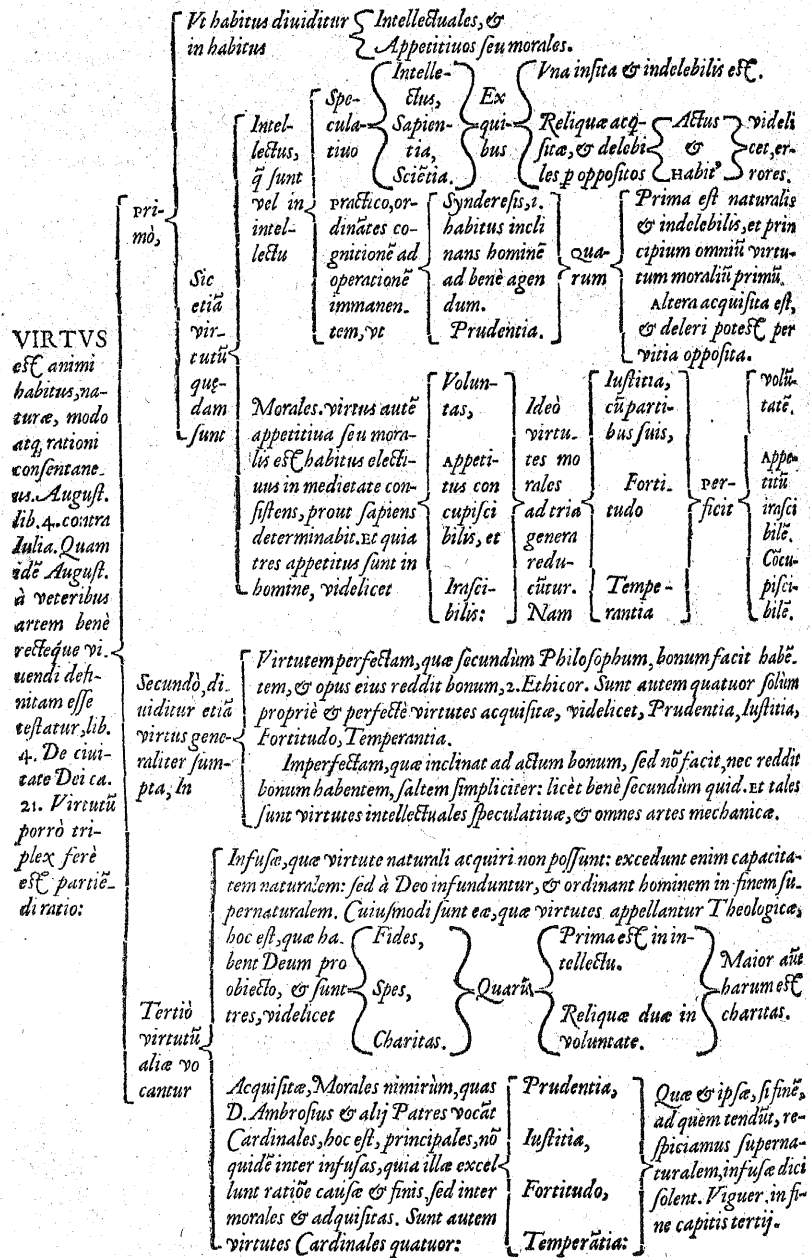 VIRTVS
est animi
habitus, na-
turæ, modo
atq; rationi
consentane-
us. August.
lib. 4. contra
Iulia. Quam
idē August.
à veteribus
artem benè
rectéque vi-
uendi defi-
nitam esse
testatur, lib.
4. De ciui-
tate Dei ca.
21. Virtutū
porrò tri-
plex ferè
est partiē-
di ratio:
Pri-
mò,
Vt habitus diuiditur
in habitus
Intellectuales, &
Appetitiuos seu morales.
Sic
etiā
vir-
tutū
quę-
dam
sunt
Intel-
lectus,
q̄ sunt
vel in
intel-
lectu
Spe-
cula-
tiuo
Intelle-
ctus,
Sapien-
tia,
Sciētia.
Ex
qui-
bus
Vna insita & indelebilis est.
Reliquæ acq̄-
sitæ, & delebi-
les p oppositos
Actus
&
Habit⁹
videli
cet, er-
rores.
Practico, or-
dinātes co-
gnitionē ad
operationē
immanen-
tem, vt
Synderesis, i.
habitus incli
nans hominē
ad benè agen
dum.
Prudentia.
Qua-
rum
Prima est naturalis
& indelebilis, et prin
cipium omniū virtu-
tum moraliū primū.
Altera acquisita est,
& deleri potest per
vitia opposita.
Morales. virtus autē
appetitiua seu mora-
lis est habitus electi-
uus in medietate con-
sistens, prout sapiens
determinabit. Et quia
tres appetitus sunt in
homine, videlicet
Volun-
tas,
Appeti-
tus con
cupisci
bilis, et
Irasci-
bilis:
Ideò
virtu-
tes mo
rales
ad tria
genera
redu-
cūtur.
Nam
Iustitia,
cū parti-
bus suis,
Forti-
tudo
Tempe-
rantia
Per-
ficit
volū-
tatē.
Appe-
titū
irasci
bilē.
Cōcu-
pisci-
bilē.
Secundò, di-
uiditur etiā
virtus gene-
raliter sum-
pta, In
Virtutem perfectam, quæ secundùm Philosophum, bonum facit habē-
tem, & opus eius reddit bonum, 2. Ethicor. Sunt autem quatuor solùm
propriè & perfectè virtutes acquisitæ, videlicet, Prudentia, Iustitia,
Fortitudo, Temperantia.
Imperfectam, quæ inclinat ad actum bonum, sed nō facit, nec reddit
bonum habentem, saltem simpliciter: licèt benè secundùm quid. Et tales
sunt virtutes intellectuales speculatiuæ, & omnes artes mechanicæ.
Tertiò
virtutū
aliæ vo
cantur
Infusæ, quæ virtute naturali acquiri non possunt: excedunt enim capacita-
tem naturalem: sed à Deo infunduntur, & ordinant hominem in finem su-
pernaturalem. Cuiusmodi sunt eæ, quæ virtutes appellantur Theologicæ,
hoc est, quæ ha-
bent Deum pro
obiecto, & sunt
tres, videlicet
Fides,
Spes,
Charitas.
Quarū
Prima est in in-
tellectu.
Reliquæ duæ in
voluntate.
Maior aūt
harum est
charitas.
Acquisitæ, Morales nimirùm, quas
D. Ambrosius & alij Patres vocāt
Cardinales, hoc est, principales, nō
quidē inter infusas, quia illæ excel
lunt ratiōe causæ & finis, sed inter
morales & adquisitas. Sunt autem
virtutes Cardinales quatuor:
Prudentia,
Iustitia,
Fortitudo,
Temperātia:
Quæ & ipsæ, si finē,
ad quem tendūt, re-
spiciamus superna-
turalem, infusæ dici
solent. Viguer. in fi-
ne capitis tertij.